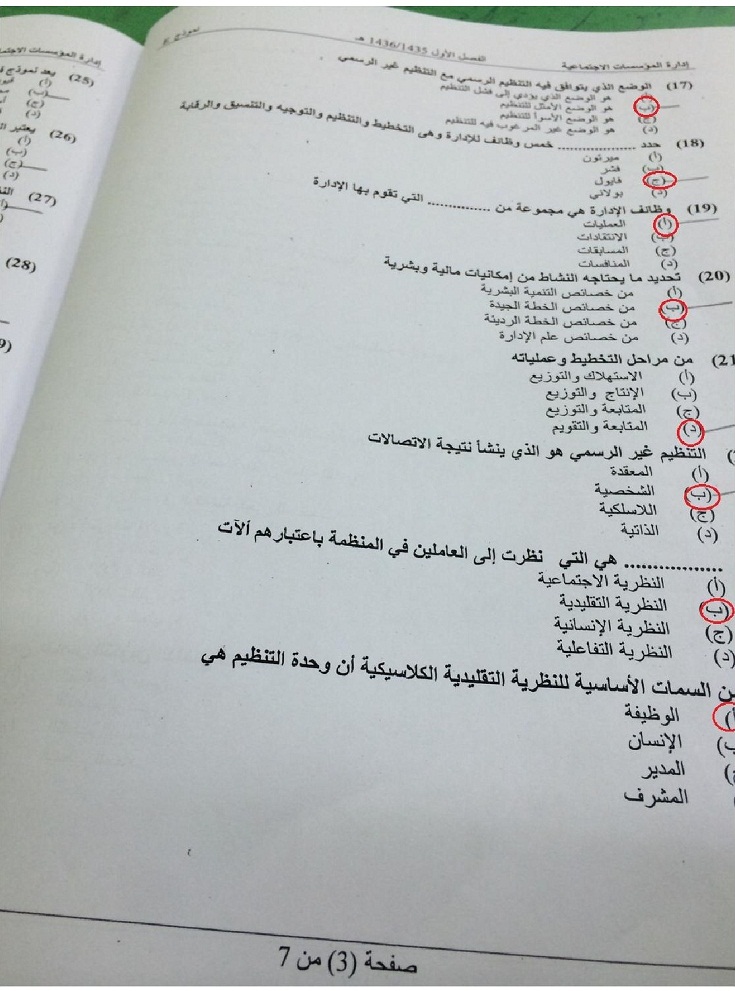 إدارة المؤسسات الاجتماعية الفصل الأول 1436/1435 هـ نموذج
(17) الوضع الذي يتوافق فيه التنظيم الرسمي مع التنظيم غير الرسمي
(أ) هو الوضع الذي يؤدي إلى فشل التنظيم
(ب) هو الوضع الأمثل للتنظيم
(ج) هو الوضع الأسوأ للتنظيم
(د) هو الوضع غير المرغوب فيه للتنظيم
(18) حدد .................. خمس وظائف للإدارة وهى التخطيط والتنظيم والتوجيه والتنسيق والرقابة
(أ) ميرتون
(ب) فشر
(ج) فايول
(د) بولاني
(19) وظائف الإدارة هي مجموعة من ............... التي تقوم بها الإدارة
(أ) العمليات
(ب) الانتقادات
(ج) المسابقات
(د) المنافسات
(20) تحديد ما يحتاجه النشاط من إمكانيات مالية وبشرية
(أ) من خصائص التنمية البشرية
(ب) من خصائص الخطة الجيدة
(ج) من خصائص الخطة الرديئة
(د) من خصائص علم الإدارة
(21 من مراحل التخطيط وعملياته
(أ) الاستهلاك والتوزيع
(ب) الإنتاج والتوزيع
(ج) المتابعة والتوزيع
(د) المتابعة والتقويم
التنظيم غير الرسمي هو الذي ينشأ نتيجة الاتصالات
(أ) المعقدة
(ب) الشخصية
(ج) اللاسلكية
(د) الذاتية
.................. هي التي نظرت إلى العاملين في المنظمة باعتبارهم ألآت
(أ) النظرية الاجتماعية
(ب) النظرية التقليدية
(ج) النظرية الإنسانية
(د) النظرية التفاعلية
ن السمات الأساسية للنظرية التقليدية الكلاسيكية أن وحدة التنظيم هي
أ) الوظيفة
ب) الإنسان
ج) المدير
المشرف
صفحة (3) من 7
إدارة المؤسسات الاجتما
(25) يعد نموذج
(أ)
(ب)
(ج)
(د)
(26) يعتبر
(أ)
(ب)
(ج)
(د)
(27)
(28)